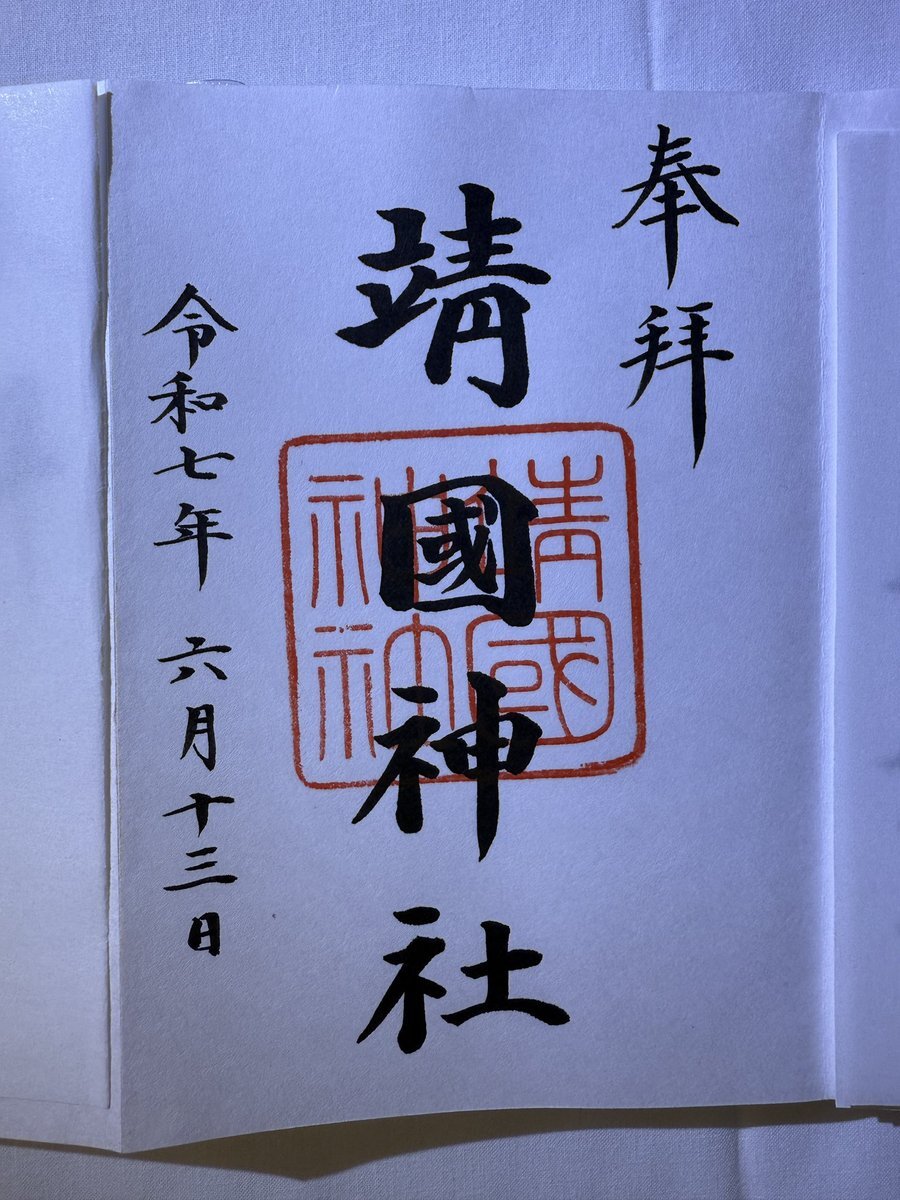 奉拜
靖國神社
靖國神社
令和七年 六月十三日